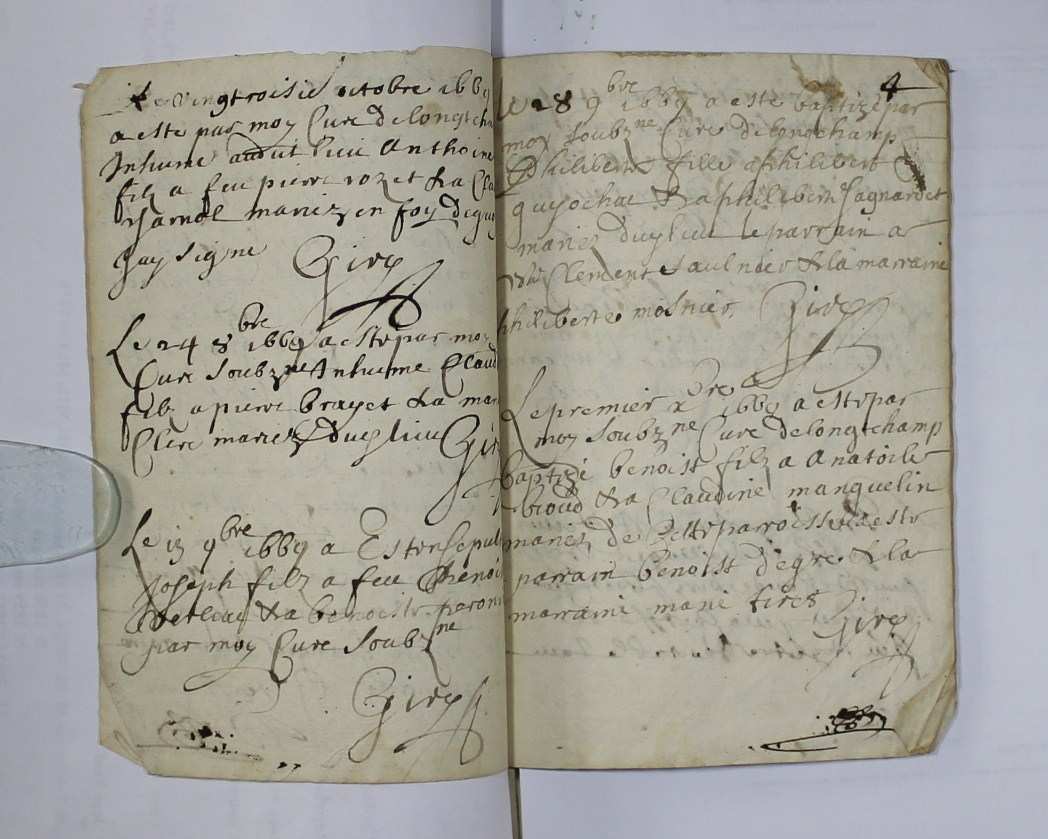 Le vingtroisie octobre 1669
a este par moy Cure de longcha
Inhume audit lieu Anthoine
filz a feu pierre rozet & a Cla
mariez en foy de quoy
Jay signe Girey
Le 24 8bre 1669 a este par moy
Cure soubzne Inhume Claud
filz a pierre brayet & a mar
Clerc mariez dudlieu Gir
Le 13 9bre 1669 a Este sepul
Joseph filz a feu benoi
& a benoiste
par moy Cure soubzne
Girey
4
Le 28 9bre 1669 a este baptize par
moy soubzne Cure de longchamp
philiberte fille a philibert
guyochat & a philiberte Jagnardet
mariez dudlieu le parrain a
Clement saulnier & la marraine
philiberte mosnier. Girey
Le premier xbre 1669 a este par
moy soubzne Cure de longchamp
baptizé benoist filz a Anatoile
bioud & a Claudine manguelin
mariez de Ceste parroisse
parrain benoist degre & la
marraine marie
Girey